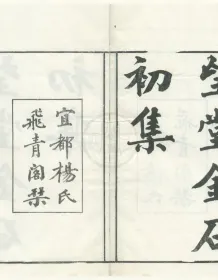 朢堂金石
初集
宜都楊氏
飛青閣栞